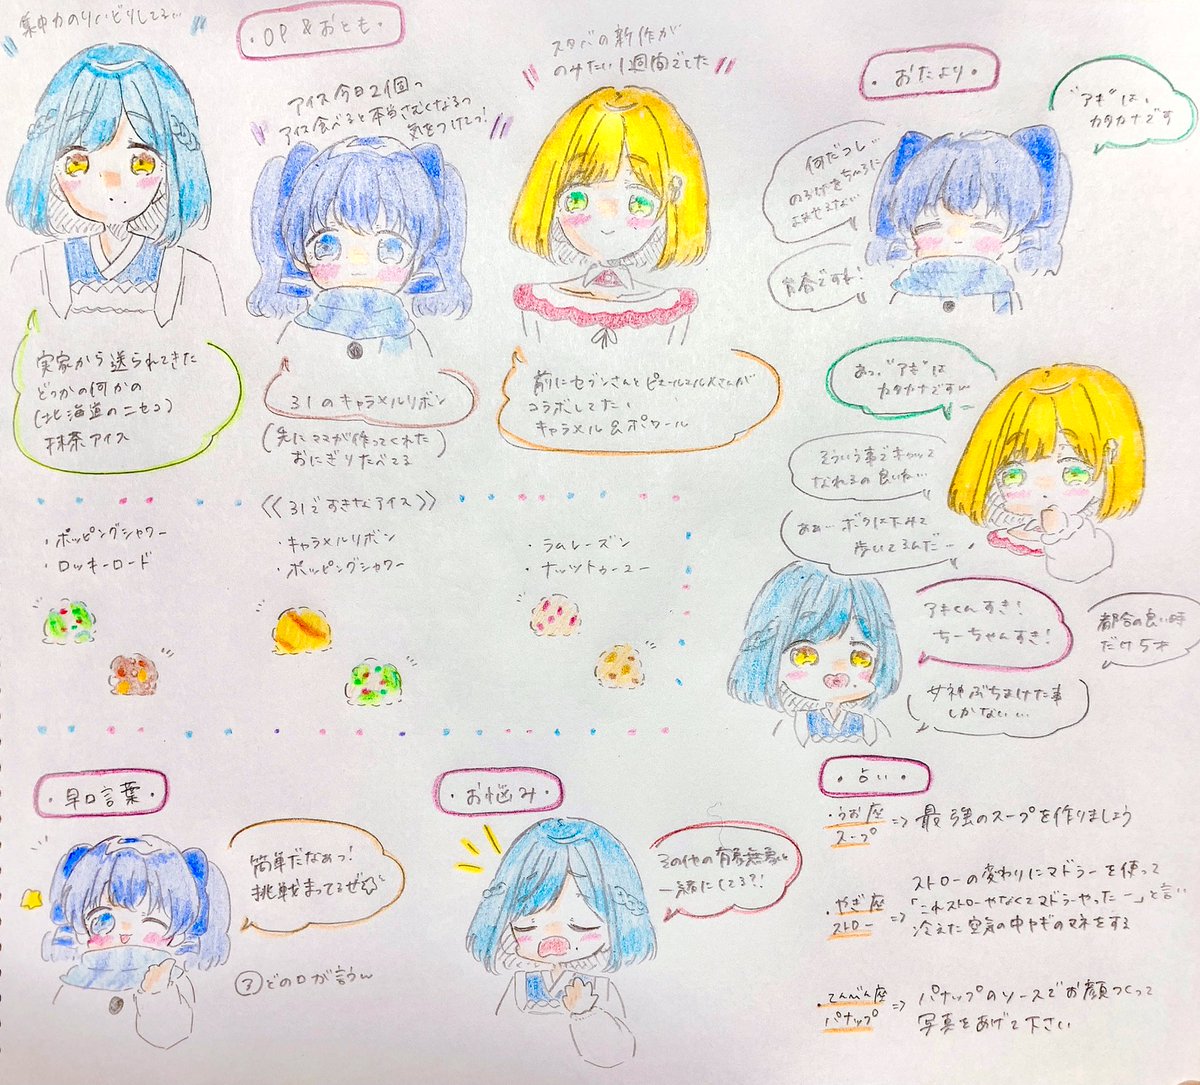 集中力のりいどりしてるぃ
・OP & おとも・
アイス今日2個っ
アイス食べると本当さむくなるっ
気をつけてっ!
スタバの新作が
のみたい1週間でした
・おたより・
"アキ"は、
カタカナです
何だコレ…
のろけをちゃろに
よませるない
青春ですね!
実家から送られてきた
どっかの何かの
(北海道のニセコ)
抹茶アイス
31のキャラメルリボン
(先にママが作ってくれた)
おにぎりたべてる
前にセブンさんとピエールエルメさんが
コラボしてた、
キャラメル&ポワール
あっ、"アキ"は
カタカナですぃ
そういう事でキャッて
なれるの良いね…
あぁ…ボクは下みて
歩いてるんだー
《31ですきなアイス》
・ポッピングシャワー
・ロッキーロード
・キャラメルリボン
・ポッピングシャワー
・ラムレーズン
・ナッツトゥーユー
アキくんすき!
ちーちゃんすき!
都合の良い時
だけ5才
女神ぶちまけた事
しかない…
・早口言葉・
簡単だなぁっ!
挑戦まってるぜ☆
③どの口が言うw
・お悩み・
その他の有象無象と
一緒にしてる?!
・占い・
・うお座
スープ
⇒ 最強のスープを作りましょう
・やぎ座
ストロー
⇒ ストローの変わりにマドラーを使って
「これストローやなくてマドラーやったー」と言い
冷えた空気の中ヤギのマネをする
・てんびん座
パナップ
⇒ パナップのソースでお顔つくって
写真をあげて下さい